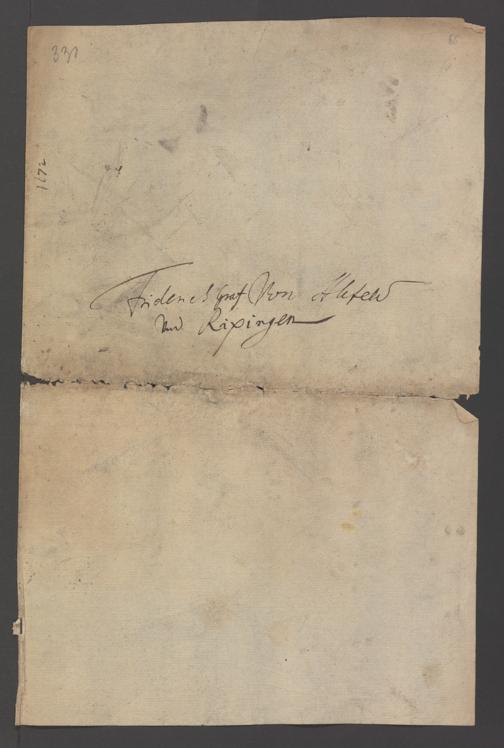 331
65
1672
Friderich Graf Von Ahlefeld
Und Rixingen